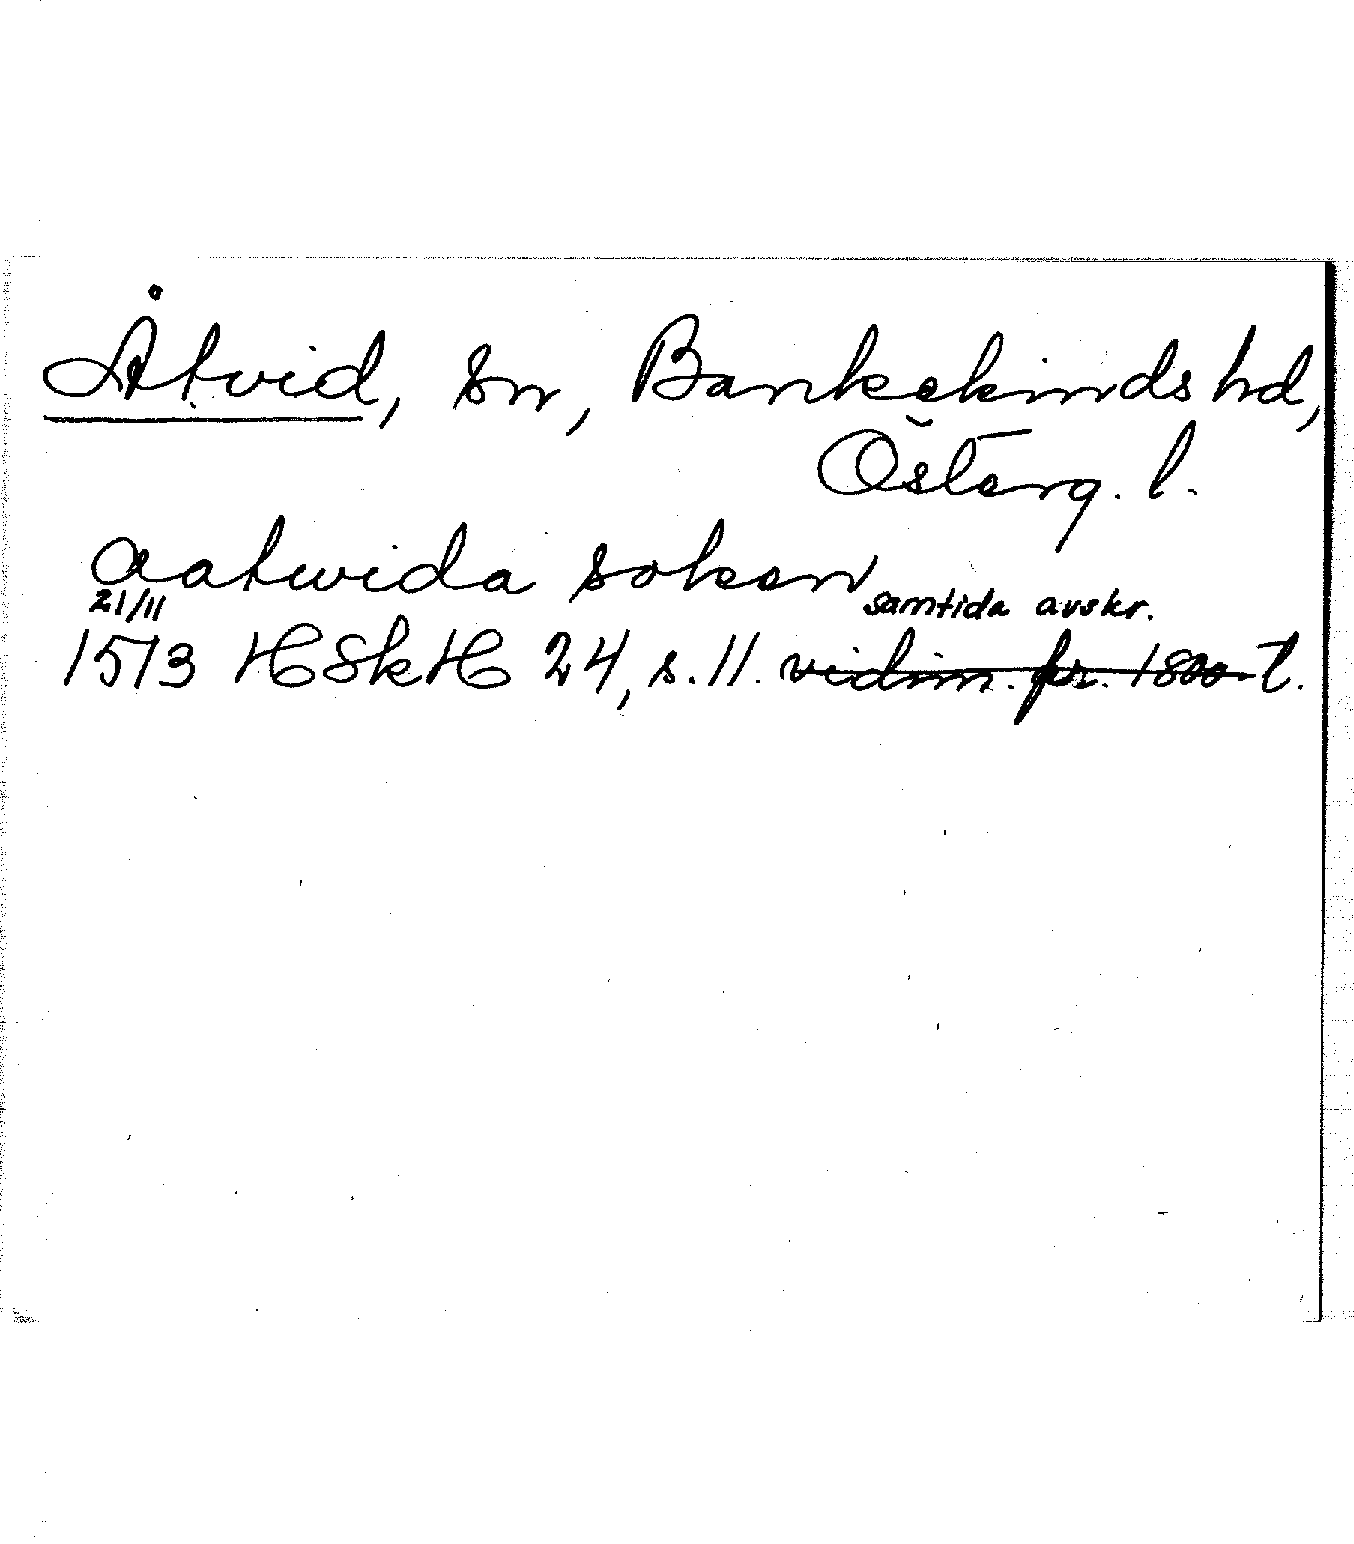 Åtvid, sn, Bankekinds hd,
Österg. l.
aatwida soken
21/11 samtida avskr.
1513 HSkH 24, s. 11. vidim. fr. 1800-t.